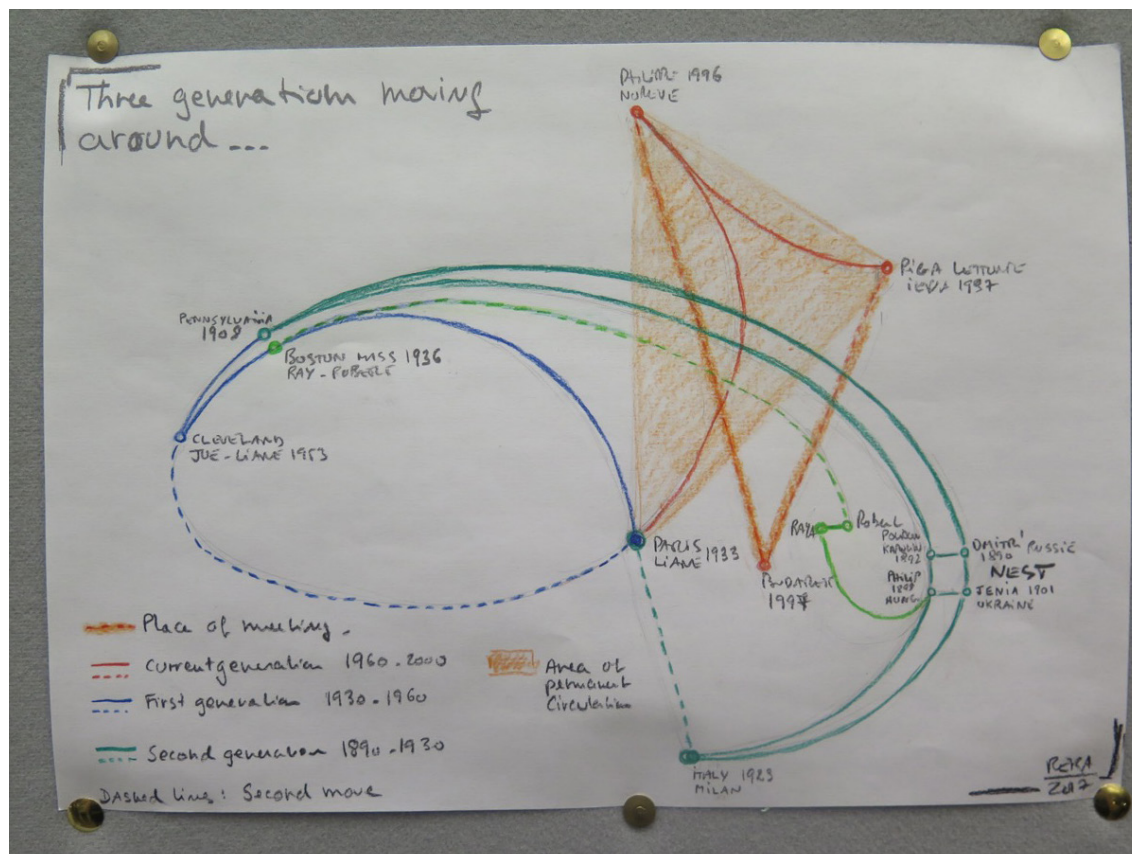 Three generations moving
around...
PHILIPPE 1996
NORVEGE
RIGA LETTONIE
IEVA 1997
PENNSYLVANIA
1908
BOSTON MASS 1936
RAY-ROBERT
CLEVELAND
JUE-LIANE 1953
PARIS
LIANE 1933
RAYA
Robert
1892
DMITRI RUSSIE
1890
NEST
PHILIP
1898
JENIA 1901
UKRAINE
BUDAPEST
ITALY 1923
MILAN
Place of meeting.
Current generation 1960-2000
First generation 1930-1960
Second generation 1890-1930
Dashed lines: Second move
Area of
permanent
Circulation
2017